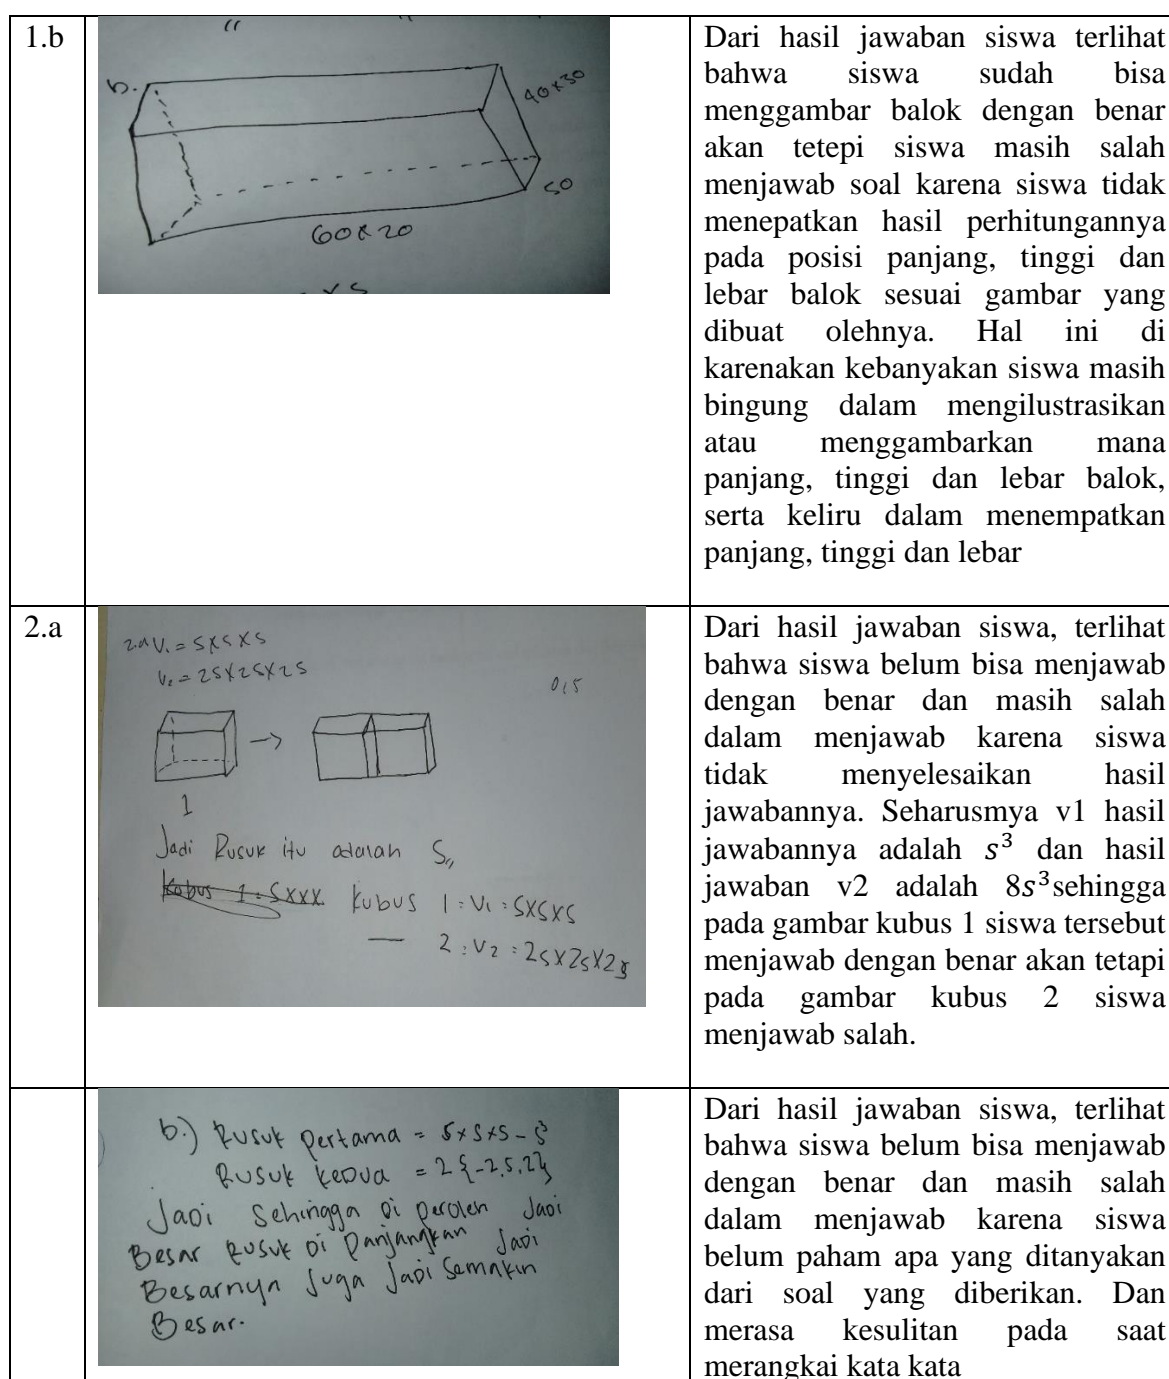 1.b
b.
40x30
50
60x20
Dari hasil jawaban siswa terlihat
bahwa siswa sudah bisa
menggambar balok dengan benar
akan tetepi siswa masih salah
menjawab soal karena siswa tidak
menepatkan hasil perhitungannya
pada posisi panjang, tinggi dan
lebar balok sesuai gambar yang
dibuat olehnya. Hal ini di
karenakan kebanyakan siswa masih
bingung dalam mengilustrasikan
atau menggambarkan mana
panjang, tinggi dan lebar balok,
serta keliru dalam menempatkan
panjang, tinggi dan lebar
2.a
2.a V₁ = S x S x S
V₂ = 2S x 2S x 2S
0,5
1
Jadi Rusuk itu adalah S,,
Kubus 1 : V₁ : S x S x S
— 2 : V₂ : 2S x 2S x 2S
Dari hasil jawaban siswa, terlihat
bahwa siswa belum bisa menjawab
dengan benar dan masih salah
dalam menjawab karena siswa
tidak menyelesaikan hasil
jawabannya. Seharusmya v1 hasil
jawabannya adalah s³ dan hasil
jawaban v2 adalah 8s³sehingga
pada gambar kubus 1 siswa tersebut
menjawab dengan benar akan tetapi
pada gambar kubus 2 siswa
menjawab salah.
b.) Rusuk pertama = S x S x S - S³
Rusuk kedua = 2
Jadi Sehingga Di peroleh Jadi
Besar Rusuk Di Panjangkan Jadi
Besarnya Juga Jadi Semakin
Besar.
Dari hasil jawaban siswa, terlihat
bahwa siswa belum bisa menjawab
dengan benar dan masih salah
dalam menjawab karena siswa
belum paham apa yang ditanyakan
dari soal yang diberikan. Dan
merasa kesulitan pada saat
merangkai kata kata